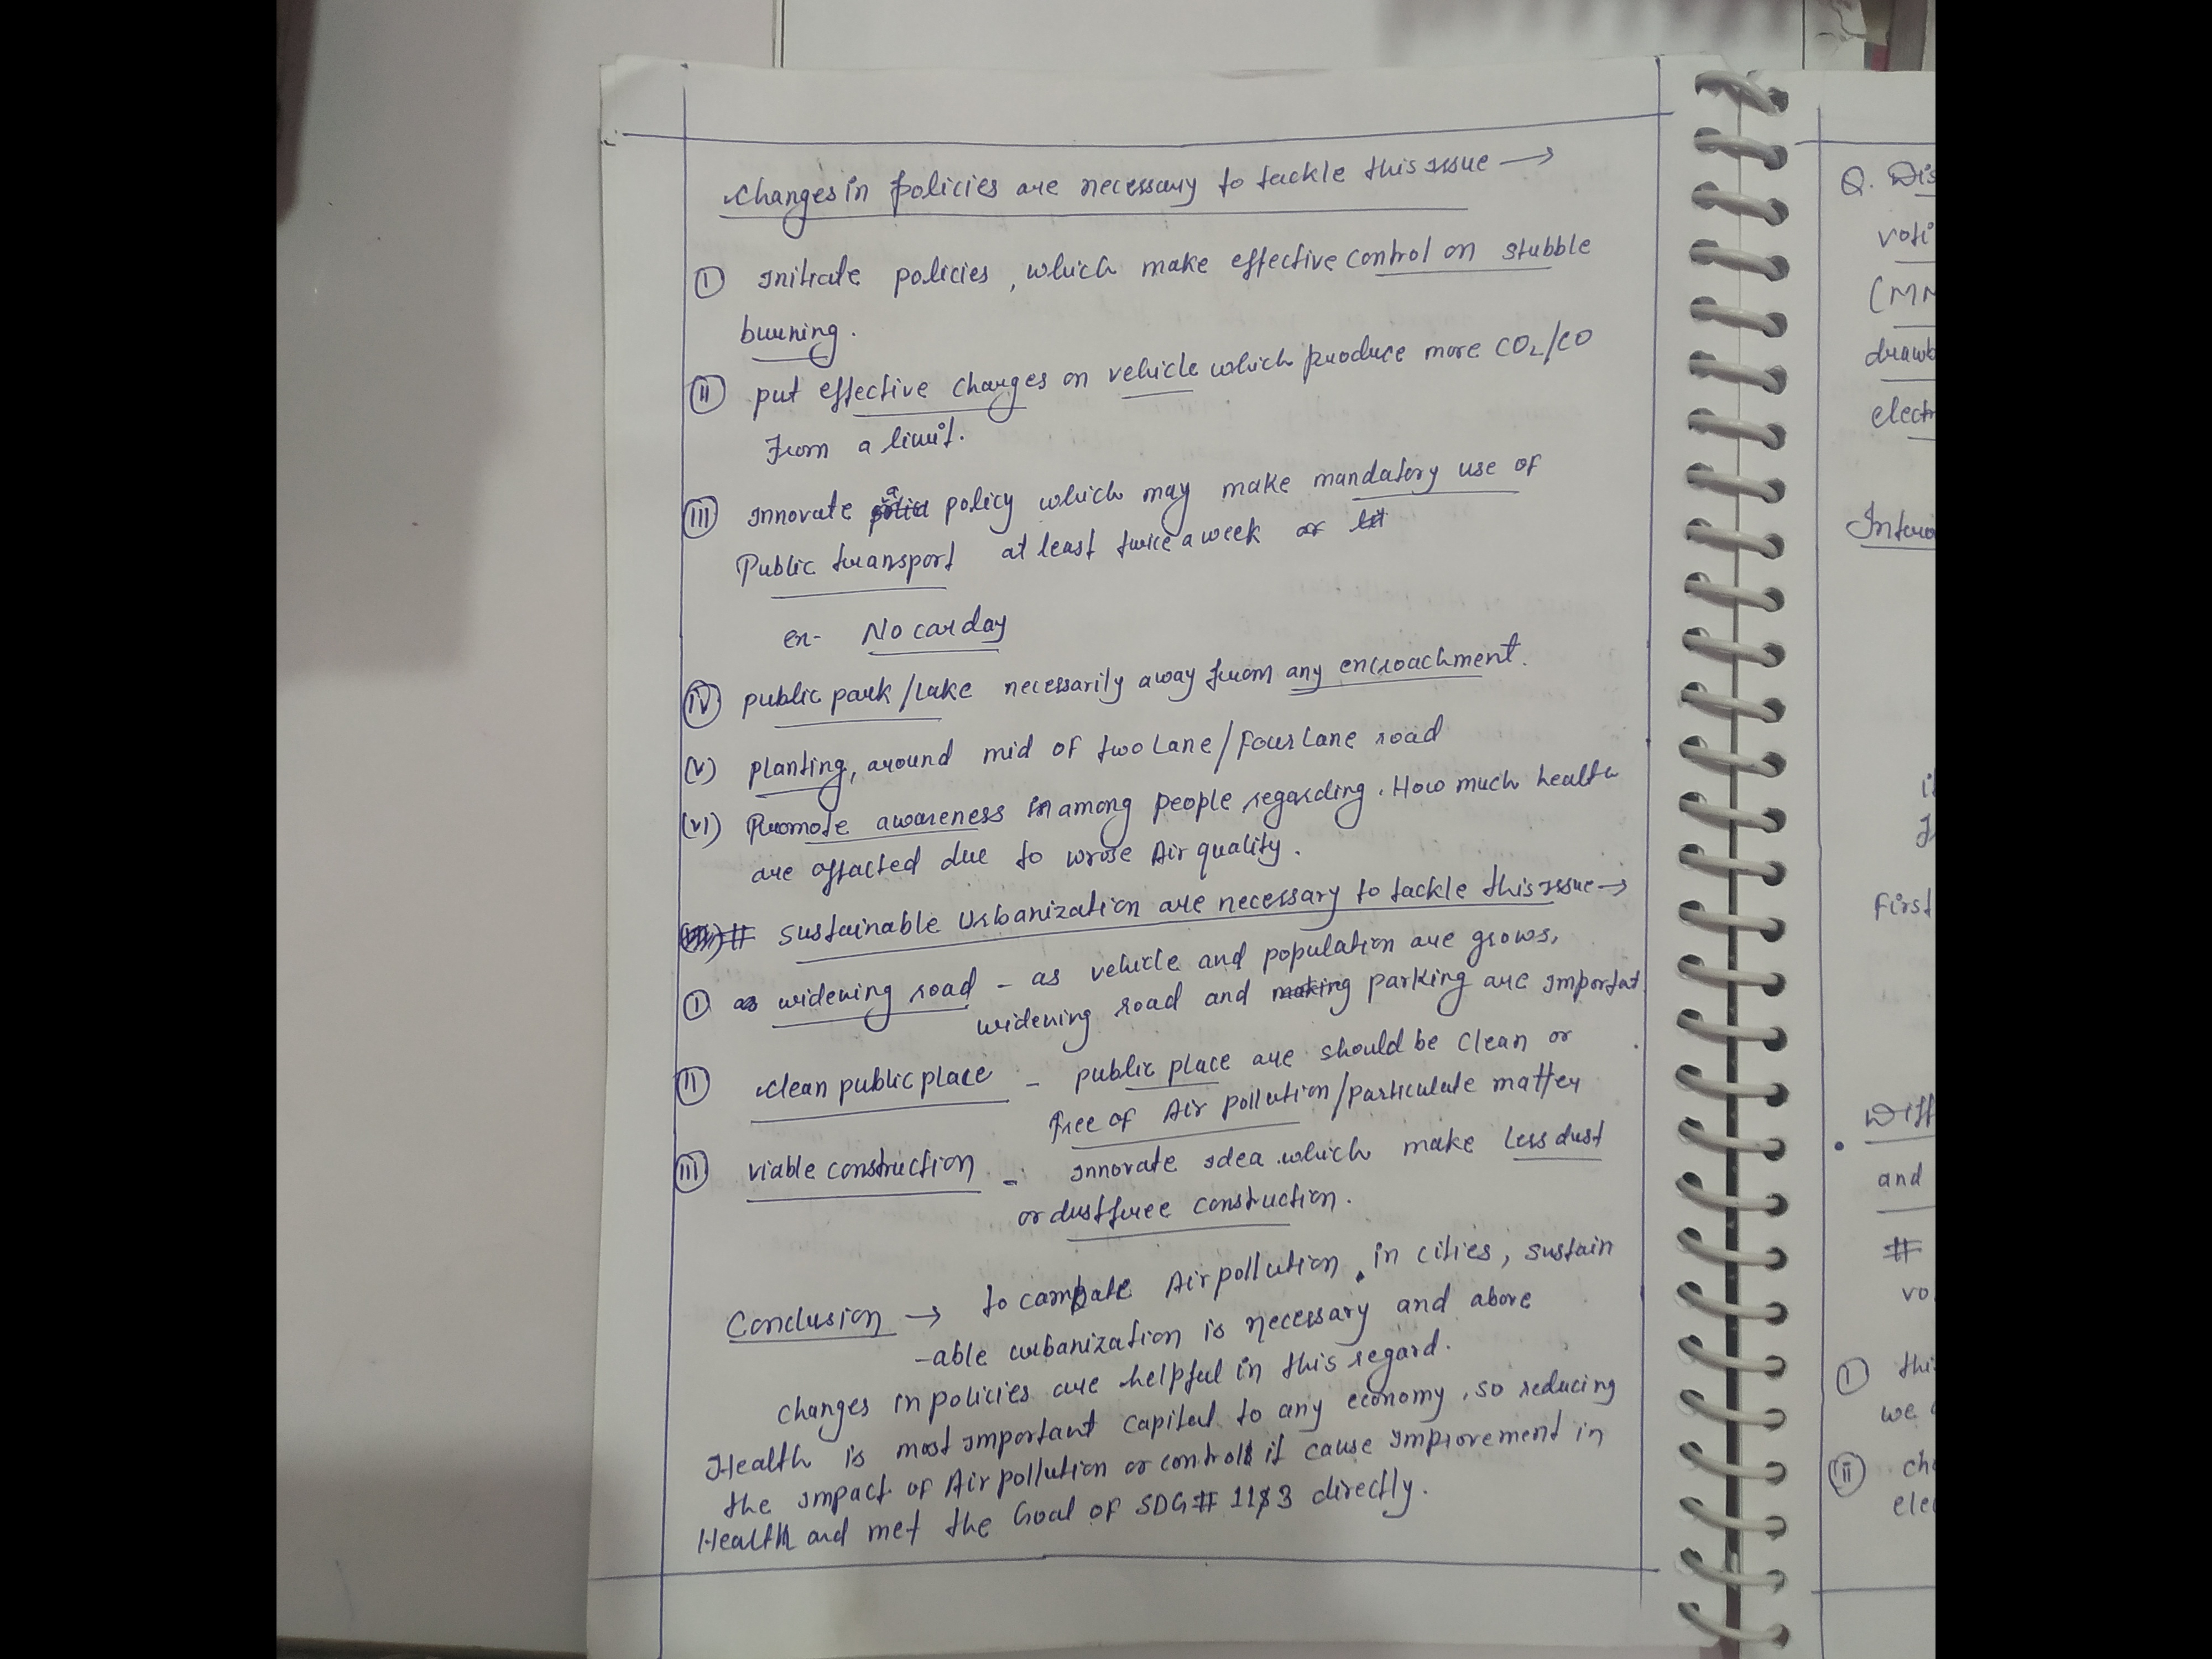 Changes in policies are necessary to tackle this issue →
(I) Initiate policies, which make effective control on stubble
burning.
(II) put effective charges on vehicle which produce more CO₂/CO
From a limit.
(III) Innovate a policy which may make mandatory use of
Public transport at least twice a week or
ex- No car day
(IV) public park/Lake necessarily away from any encroachment.
(V) planting, around mid of two Lane/Four Lane road
(VI) Promote awareness in among people regarding. How much health
are affacted due to wrose Air quality.
# Sustainable Urbanization are necessary to tackle this issue →
(I) as widening road - as vehicle and population are grows,
widening road and making parking are importat
(II) clean public place - public place are should be clean or
free of Air pollution/particulate matter
(III) viable construction - Innovate idea which make Less dust
or dust free construction.
Conclusion → to combate Air pollution in cities, sustain
-able urbanization is necessary and above
changes in policies are helpful in this regard.
Health is most important capital to any economy, so reducing
the impact of Air pollution or control it cause improvement in
Health and met the Goal of SDG# 11 & 3 directly.
Q. Dis
voti
(MM
drawb
elect
Intro
i
First
Diff
and
#
vo
(I) thi
we
(II) ch
ele